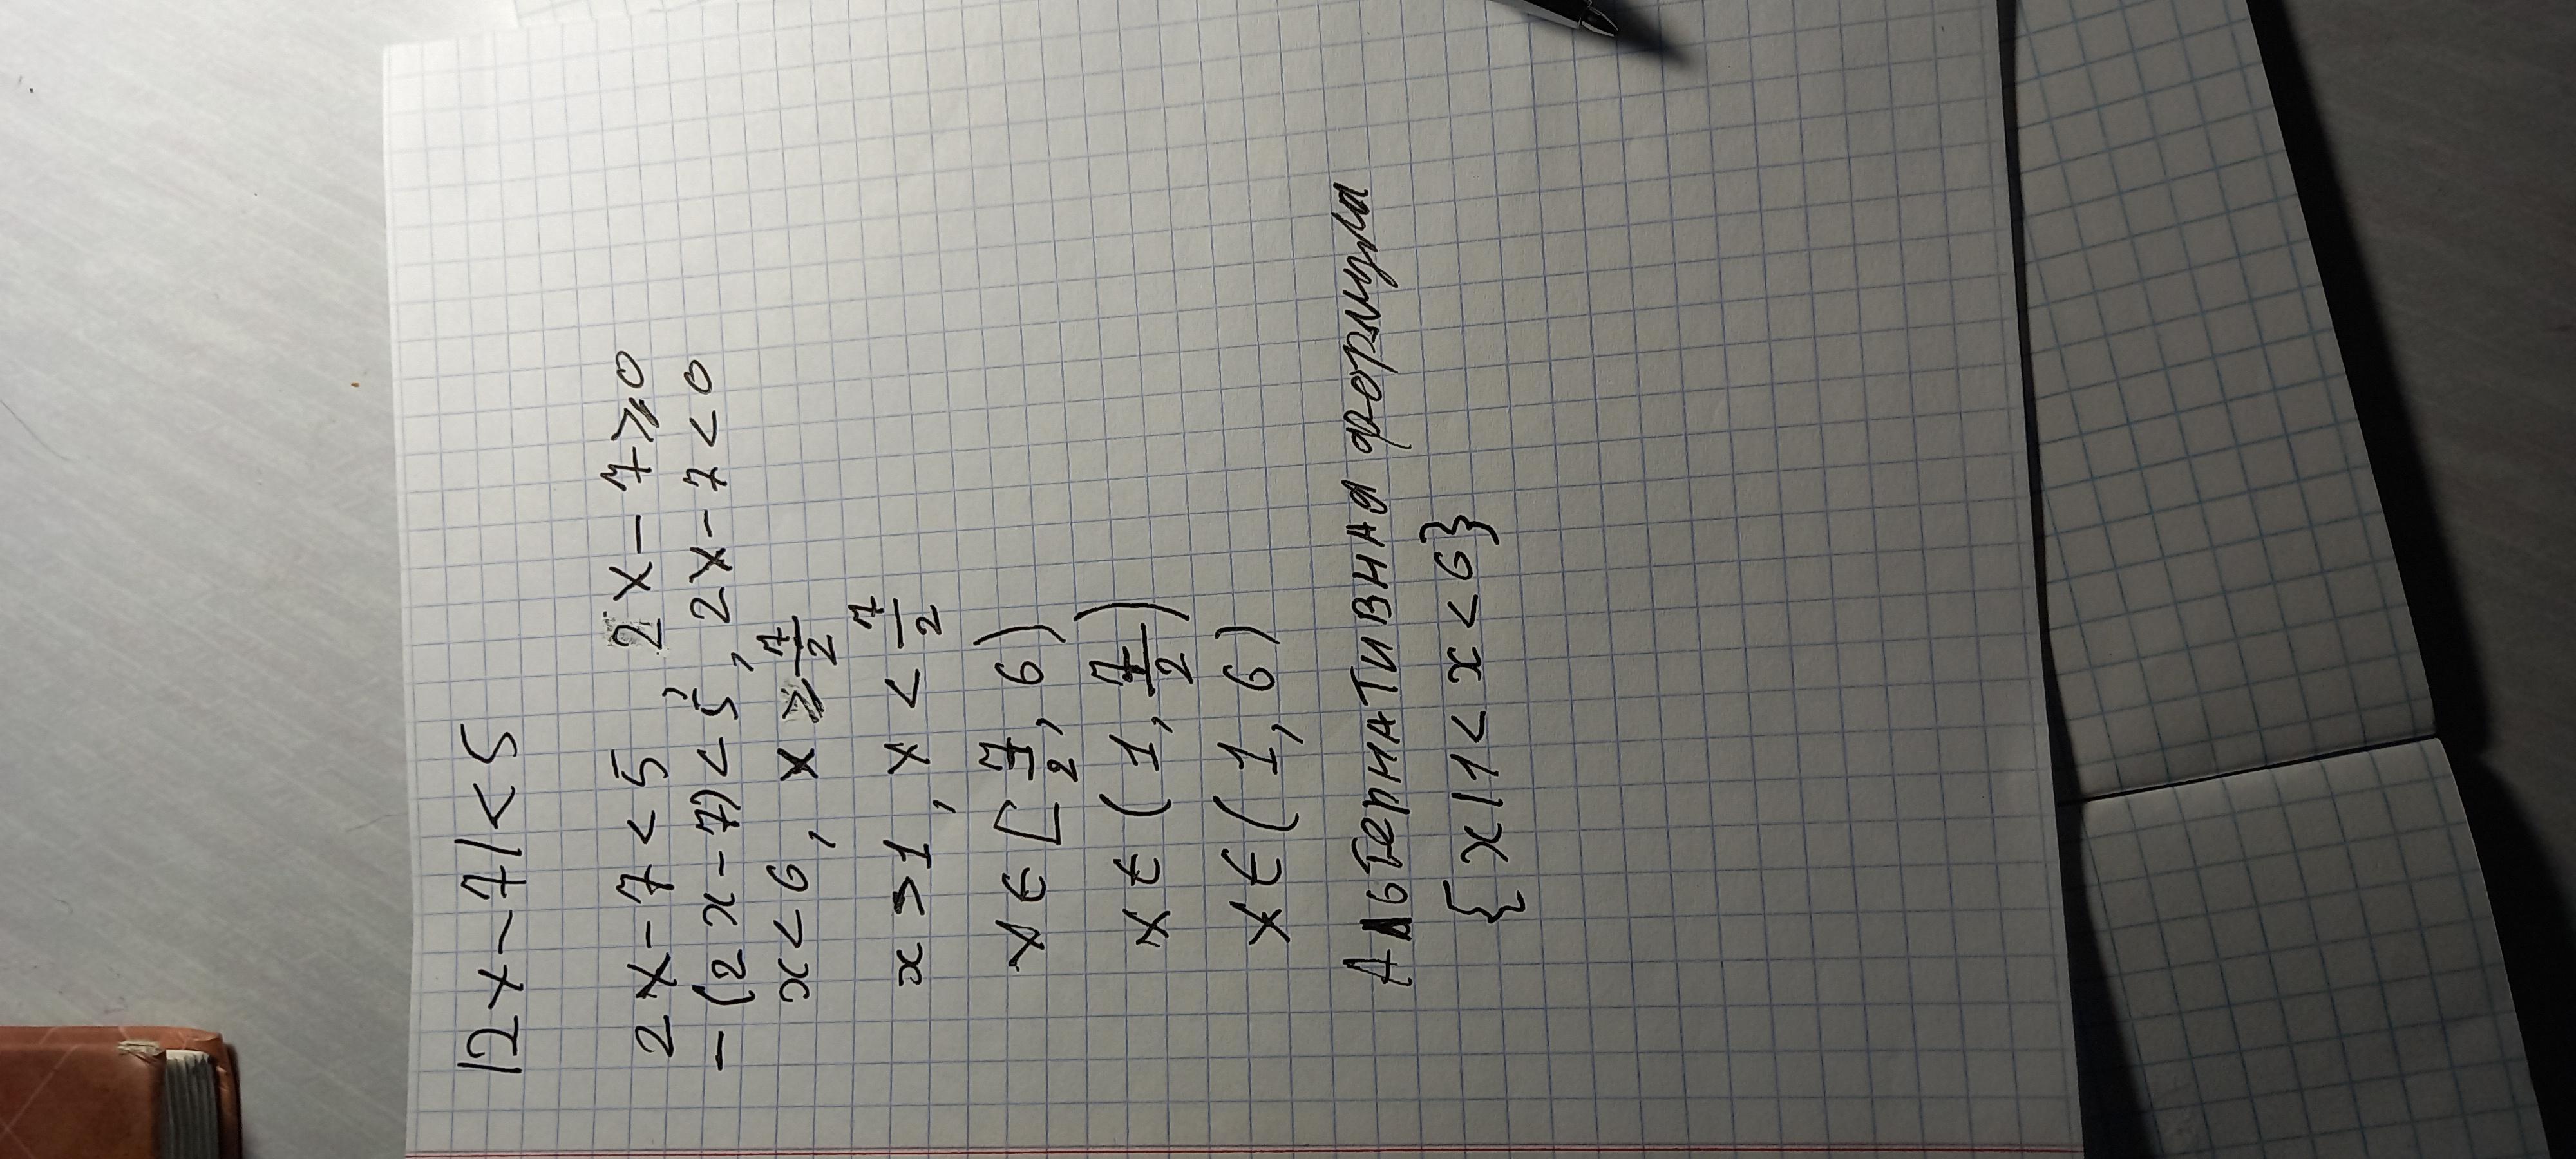 |2x-7|<5
2x-7<5, 2x-7⩾0
-(2x-7)<5, 2x-7<0
x<6, x⩾7/2
x>1, x<7/2
x∈[7/2, 6)
x∈(1, 7/2)
x∈(1, 6)
Альтернативная формула
{x|1<x<6}